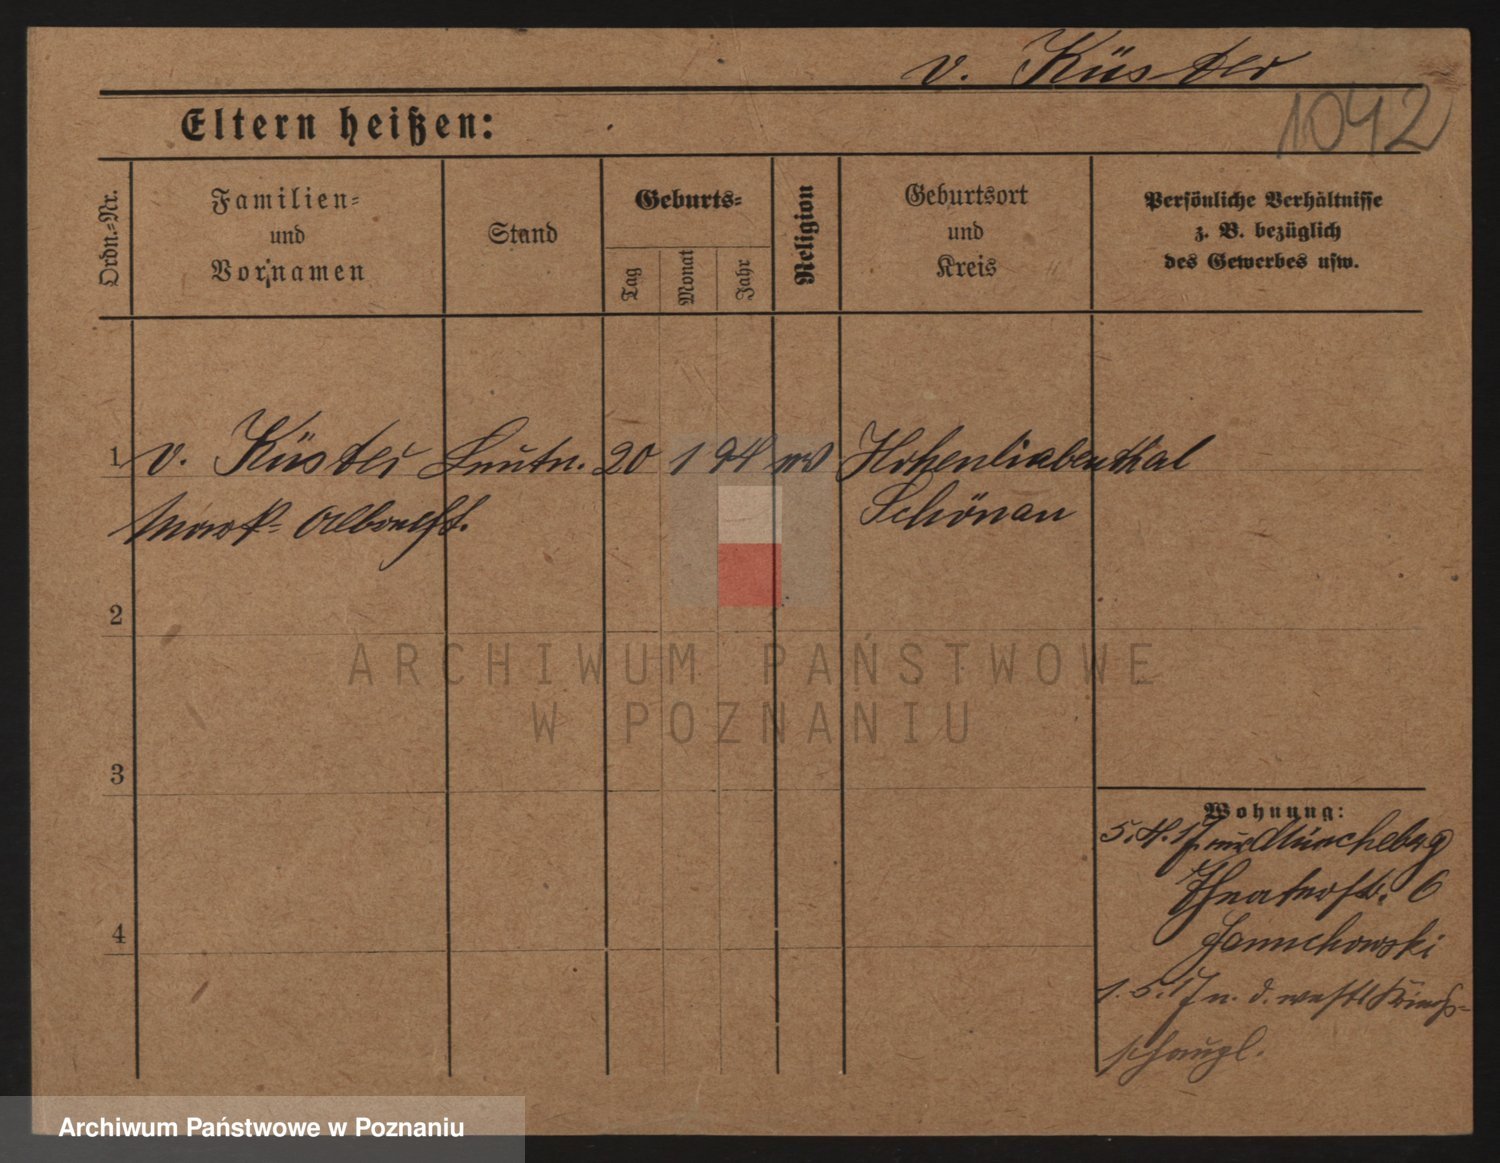 v. Küster
1042
Eltern heißen:
Ordn.-Nr.
Familien-
und
Vornamen
Stand
Geburts-
Tag
Monat
Jahr
Religion
Geburtsort
und
Kreis
Persönliche Verhältnisse
z. B. bezüglich
des Gewerbes usw.
1 v. Küster Leutn. 20 1 94 ev Hohenliebenthal
Mark-Albrecht. Schönau
2
ARCHIWUM PAŃSTWOWE
W POZNANIU
3
Wohnung:
5.4.17 aus Müncheberg
Theaterstr. 6
Januchowski
4
1.5.17 n. d. westl Kriegs-
schaupl.
Archiwum Państwowe w Poznaniu